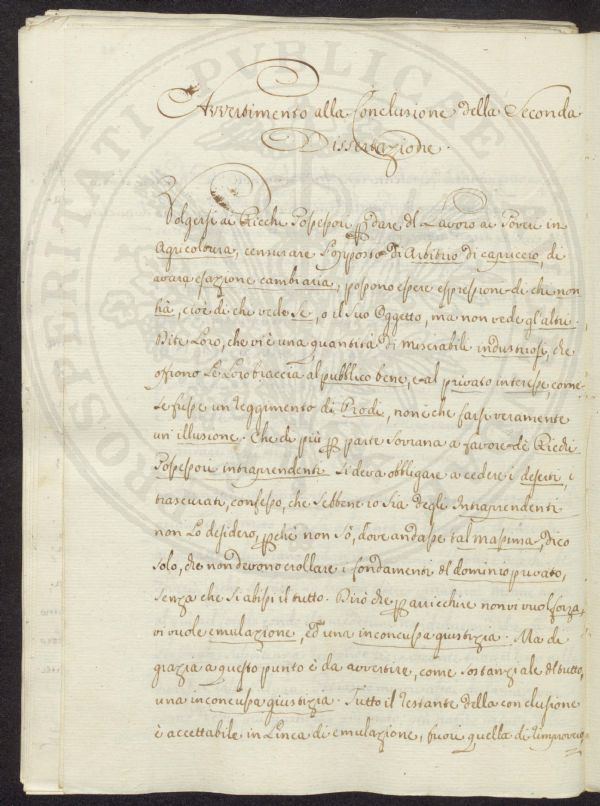 Avvertimento alla Conclusione della Seconda
Dissertazione.
Volgersi ai Ricchi Possessori per dare del Lavoro ai Poveri in
Agricoltura, censurare l'opposto di Arbitrio di capriccio, di
avara esazione cambiaria, possono essere espressione di chi non
hà, cioè di che vede se, o il suo Oggetto, ma non vede gl'altri.
Dite Loro, che vi è una quantità di miserabili industriosi, che
offrono le Loro braccia al pubblico bene, e al privato interesse, come
se fusse un reggimento di Prodi, non è che farsi veramente
un'illusione. Che di più per parte Sovrana a favore de Ricchi
Possessori intraprendenti si deva obbligare a cedere i deserti, i
trascurati, confesso, che sebbene io sia degli Intraprendenti
non lo desidero, perchè non sò, dove andasse tal massima, dico
solo, che non devono crollare i fondamenti del dominio privato,
senza che si abissi il tutto. Dirò che per arricchire non vi vuol forza,
vi vuole emulazione, ed una inconcussa giustizia. Ma di
grazia a questo punto è da avvertire, come sostanziale del tutto,
una inconcussa giustizia. Tutto il restante della conclusione
è accettabile in Linea di emulazione, fuori quella di rimprovero
PROSPERITATI PUBLICAE